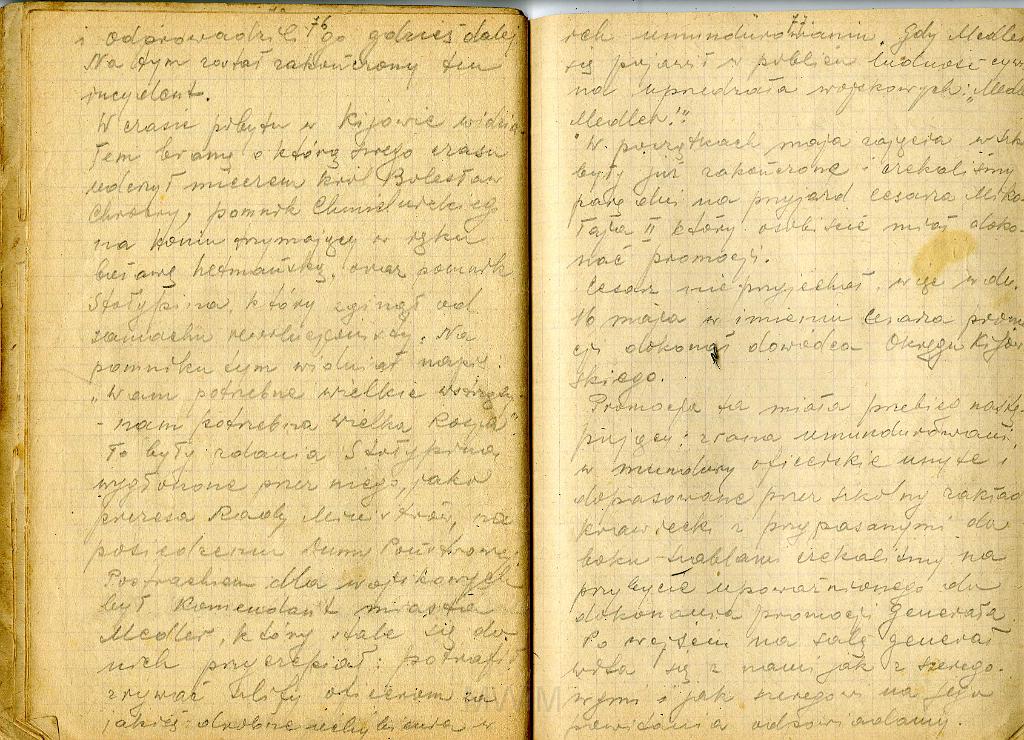 76
i odprowadzili go gdzieś dalej
Na tym został zakończony ten
incydent.
W czasie pobytu w Kijowie widzia-
łem bramę o którą swego czasu
uderzył mieczem król Bolesław
Chrobry, pomnik Chmielnickiego
na koniu trzymający w ręku
buławę hetmańską, oraz pomnik
Stołypina, który zginął od
zamachu rewolucjonisty. Na
pomniku tym widniał napis:
"Wam potrzebne wielkie wstrząsy
- nam potrzebna wielka Rosja"
To były zdania Stołypina
wygłoszone przez niego, jako
prezesa Rady Ministrów, na
posiedzeniu Dumy Państwowej.
Postrachem dla wojskowych
był Komendant miasta
Medler, który stale się do
nich przyczepiał: potrafił
zrywać szlify oficerom za
jakieś drobne uchybienia w
77
ich umundurowaniu. Gdy Medler
się pojawił w pobliżu ludność cywil
na uprzedzała wojskowych: "Medler
Medler!"
W początkach maja zajęcia w szk
były już zakończone i czekaliśmy
parę dni na przyjazd cesarza Miko-
łaja II który osobiście miał doko-
nać promocji.
Cesarz nie przyjechał, więc w dn.
16 maja w imieniu cesarza promo
cji dokonał dowódca Okręgu Kijow
skiego.
Promocja ta miała przebieg nastę-
pujący: z rana umundurowani
w mundury oficerskie uszyte i
dopasowane przez szkolny zakład
krawiecki z przypasanymi do
boku szablami czekaliśmy na
przybycie upoważnionego do
dokonania promocji Generała
Po wejściu na salę generał
wita się z nami jak z szerego-
wymi i jak szeregowi na jego
powitania odpowiadamy.
WM